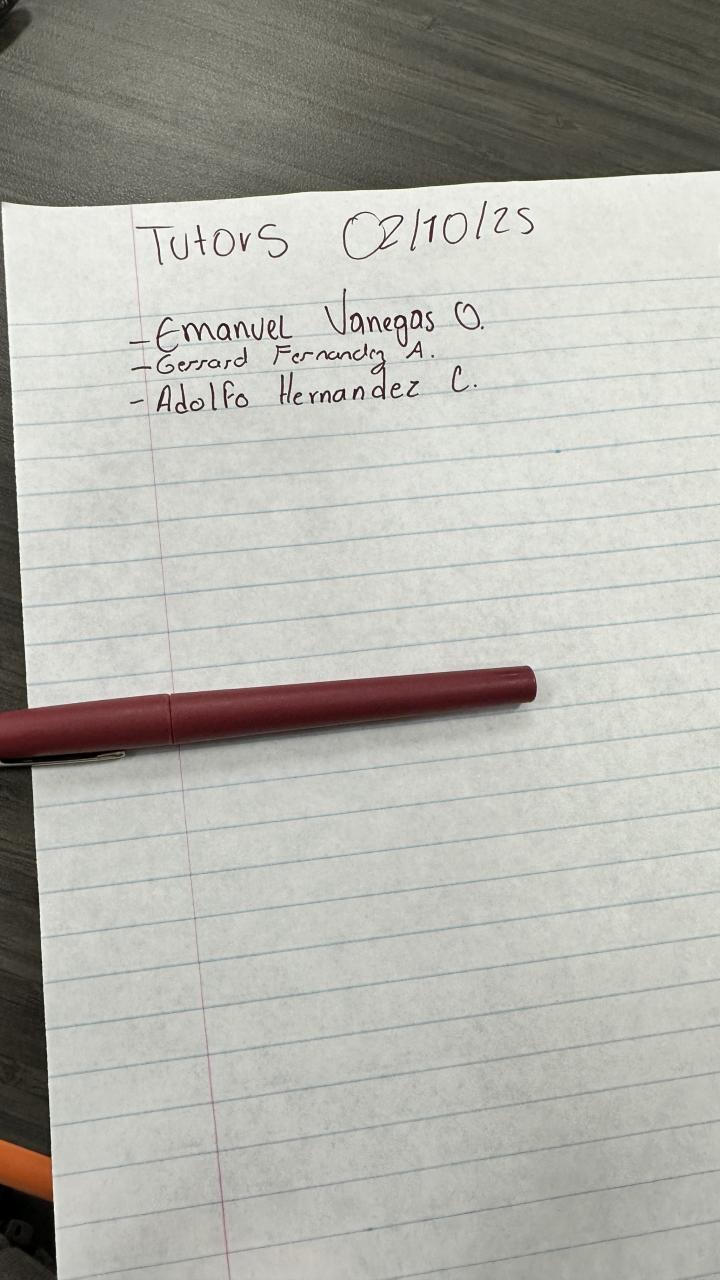 Tutors 02/10/25
- Emanuel Vanegas O.
- Gerrard Fernandez A.
- Adolfo Hernandez C.